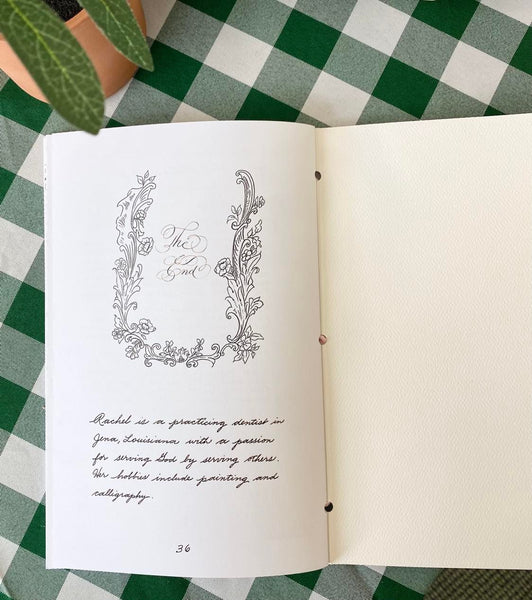 The
End
Rachel is a practicing dentist in
Jena, Louisiana with a passion
for serving God by serving others.
Her hobbies include painting and
calligraphy.
36